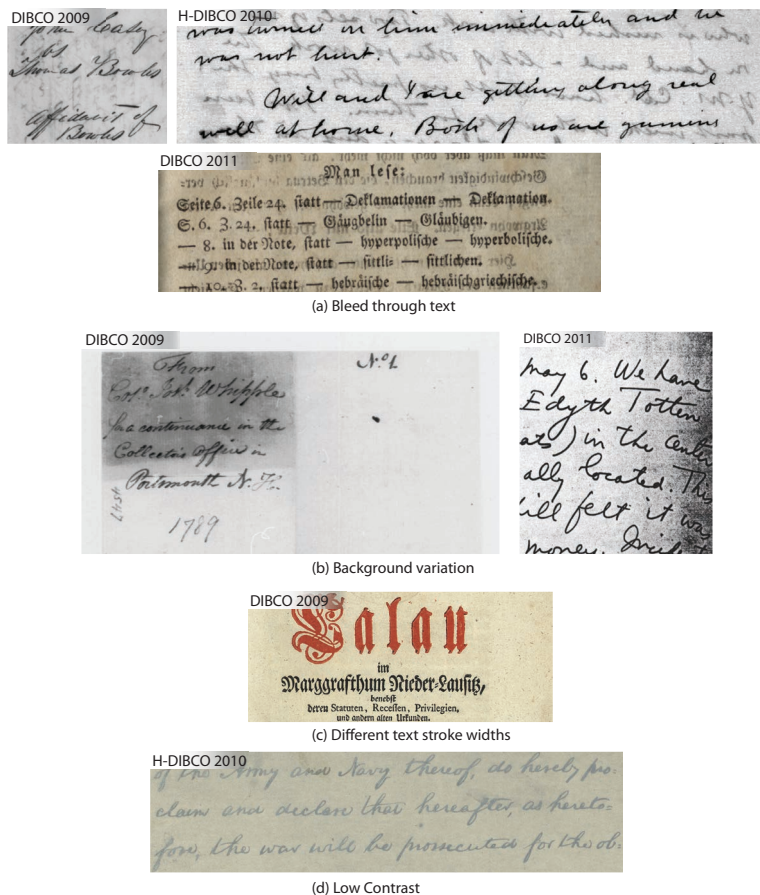 DIBCO 2009
John Casey
vs
Thomas Bowles
Affidavit of
Bowles
H-DIBCO 2010
was turned on him immediately and he
was not hurt.
Will and I are getting along real
well at home. Both of us are gaining
DIBCO 2011
Man lese:
Seite 6. Zeile 24. statt — Deklamationen — Deklamation.
S. 6. Z. 24. statt — Gäugbelin — Gläubigen.
— 8. in der Note, statt — hyperpolische — hyperbolische.
— 9. in der Note, statt — sittli- — sittlichen.
— 10. Z. 2. statt — hebräische — hebräischgriechische.
(a) Bleed through text
DIBCO 2009
From
Colo. Jos. Whipple
for a continuance in the
Collectors Office in
Portsmouth N. H.
1789
No. 1.
DIBCO 2011
May 6. We have
Edyth Totten
ats) in the center
ally located. This
will felt it was
money.
(b) Background variation
DIBCO 2009
Calau
im
Marggrafthum Nieder-Lausitz,
benebst
deren Statuten, Recessen, Privilegien,
und andern alten Urkunden.
(c) Different text stroke widths
H-DIBCO 2010
of the Army and Navy thereof, do hereby pro-
claim and declare that hereafter, as hereto-
fore, the war will be prosecuted for the ob-
(d) Low Contrast